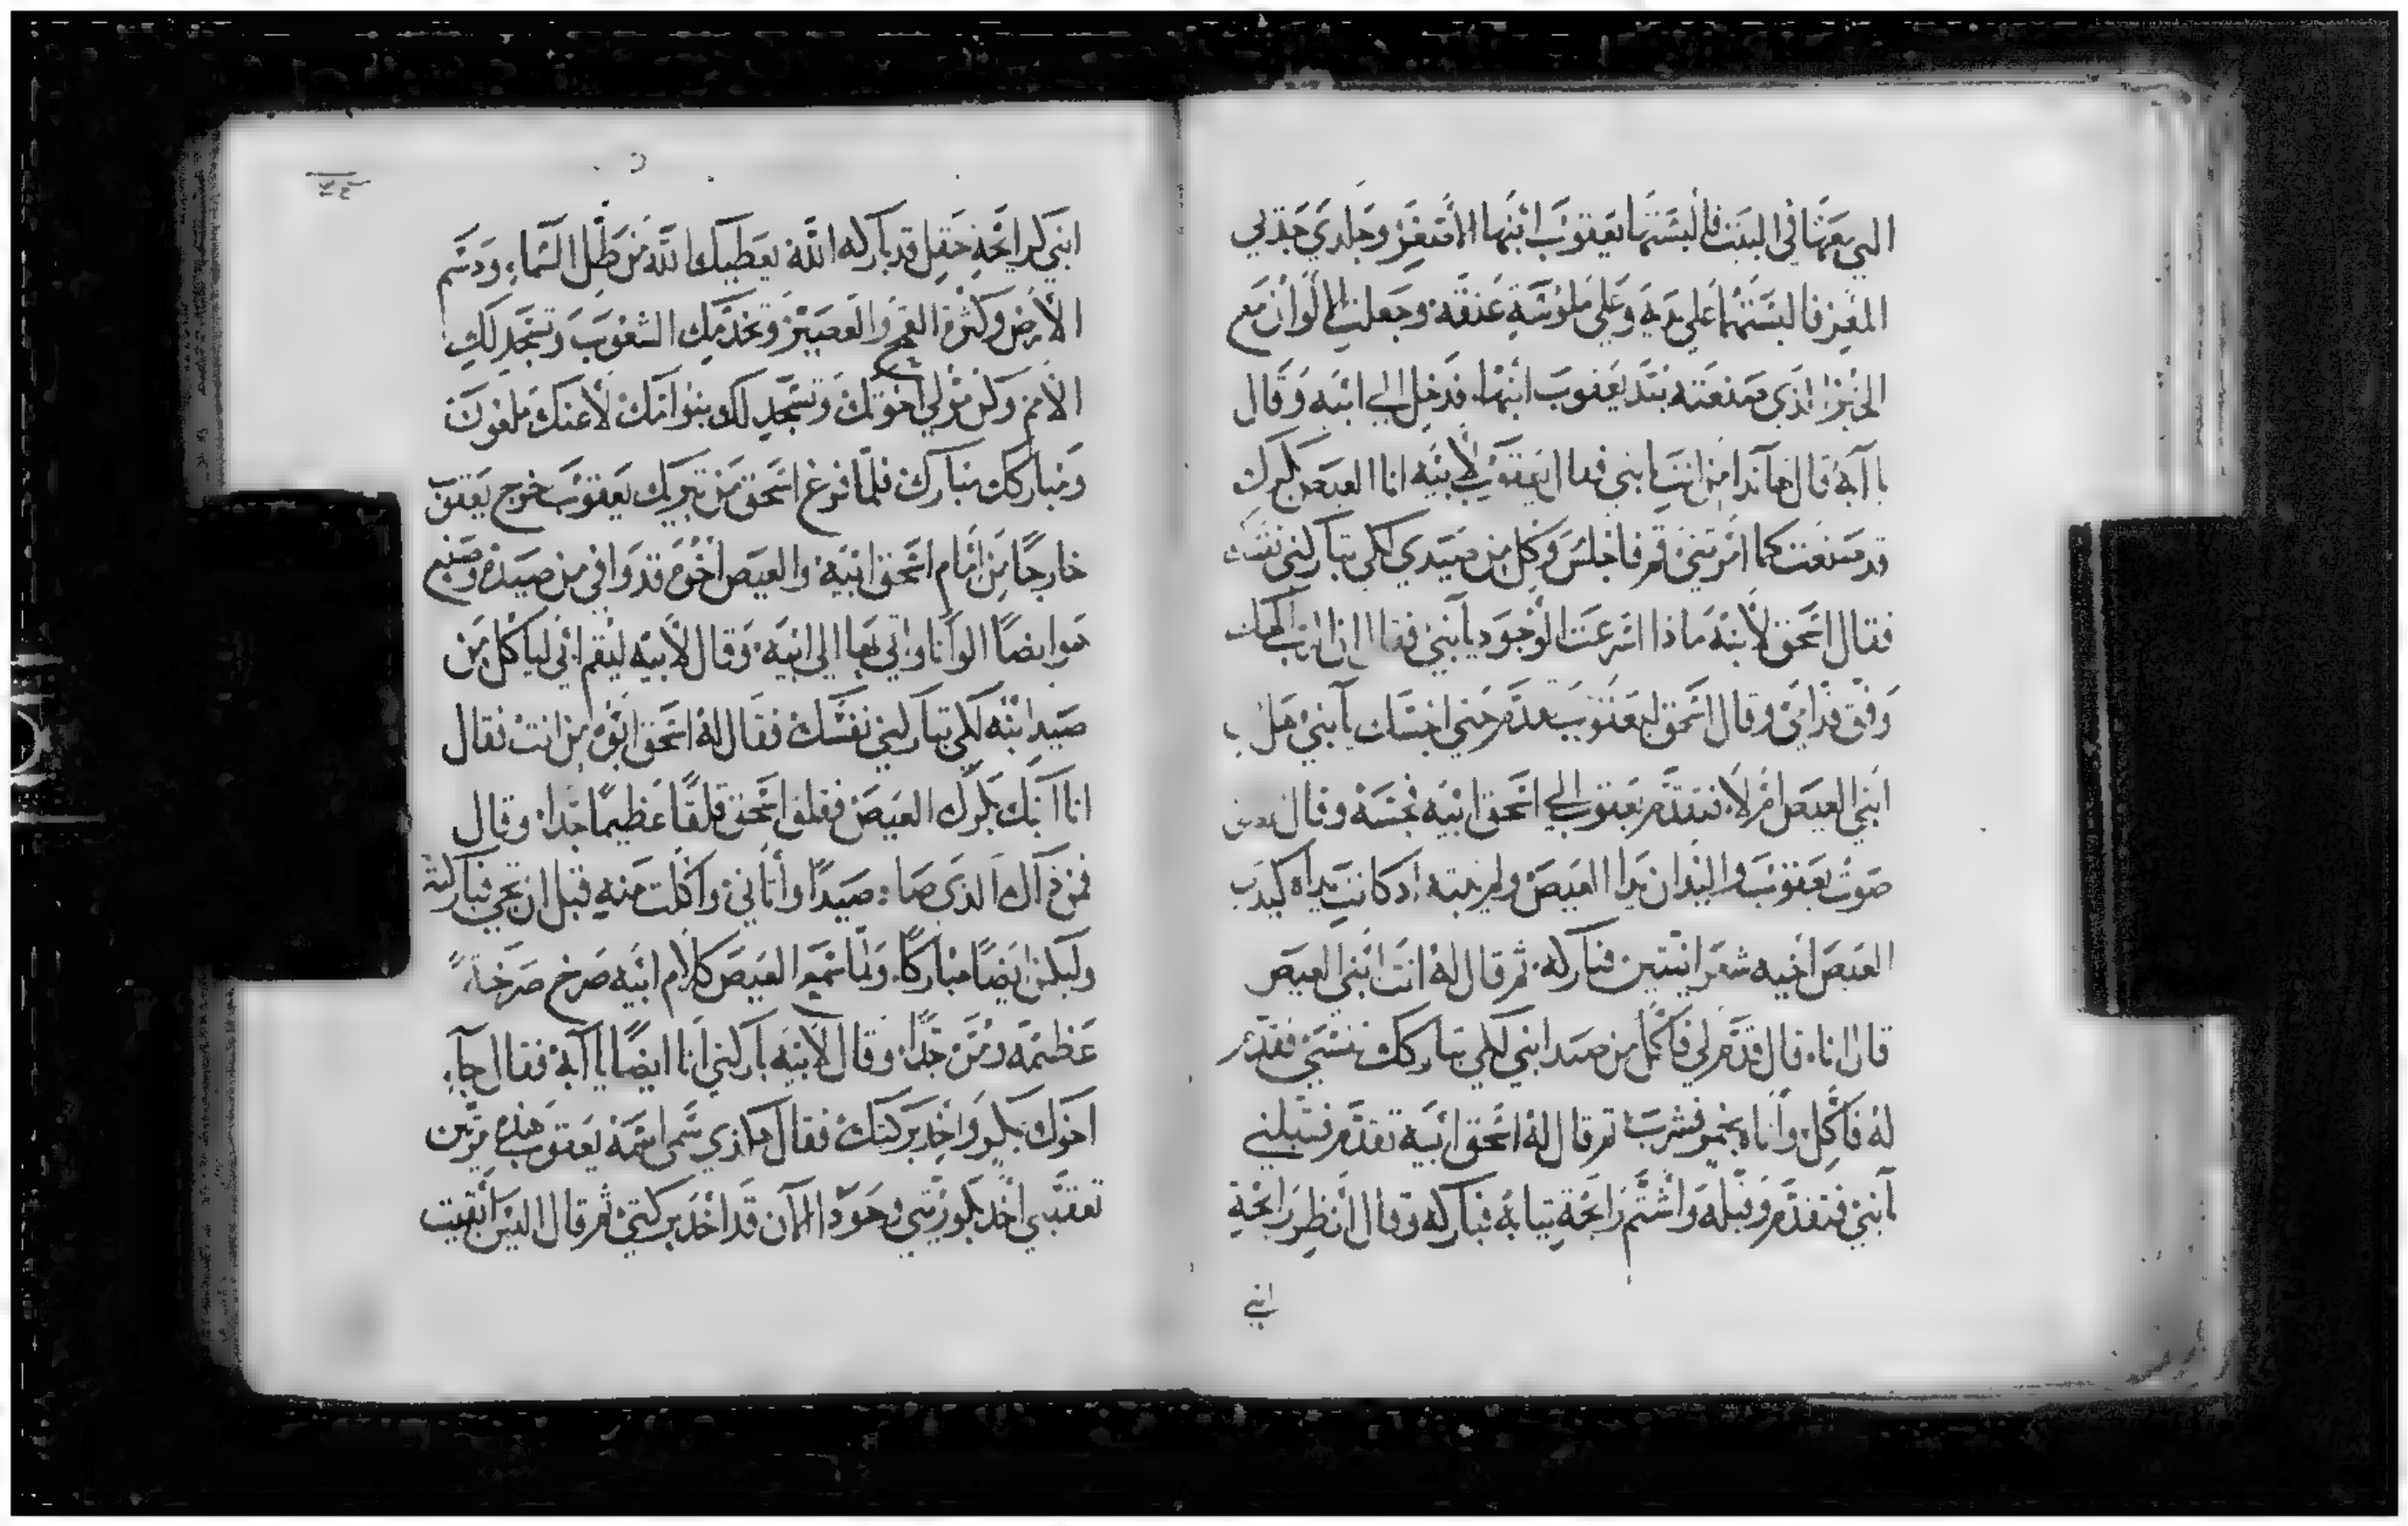 التي معها في البيت فالبستها يعقوب ابنها الاصغر وجلدي جدي
المعز فالبستهما على يديه وعلى ملوسة عنقه وجعلت الالوان مع
الخبز الذي صنعته بيد يعقوب ابنها فدخل الي ابيه وقال
يا ابه قال هآنذا من انت يا بني فقال يعقوب لابيه انا العيص بكرك
قد صنعت كما امرتني قم فاجلس وكل من صيدي لكي تباركني نفسك
فقال اسحق لابنه ماذا اسرعت الوجود يا بني فقال ان الرب الهك
وفق قدامي وقال اسحق ليعقوب تقدم حتي اجسك يا بني هل
ابني العيص ام لا فتقدم يعقوب الي اسحق ابيه فجسه وقال
صوت يعقوب واليدان يدا العيص ولم يثبته اذ كانت يداه كيدي
العيص اخيه شعرانيتين فباركه ثم قال له انت ابني العيص
قال انا قال قدم لي فآكل من صيد ابني لكي تباركك نفسي فقدم
له فاكل واتاه بخمر فشرب ثم قال له اسحق ابيه تقدم فقبلني
يا بني فتقدم وقبله واشتم رايحة ثيابه فباركه وقال انظر رايحة
ابني
٢٤
ابني كرايحة حقل قد باركه الله يعطيك الله من طل السماء ودسم
الارض وكثرة القمح والعصير وتخدمك الشعوب وتسجد لك
الامم وكن مولي اخوتك وتسجد لك بنو امك لاعنك ملعون
ومباركك مبارك فلما فرغ اسحق من تبريك يعقوب خرج يعقوب
خارجا من امام اسحق ابيه والعيص اخوه قد وافي من صيده وصنع
هو ايضا الوانا واتي بها الي ابيه وقال لابيه ليقم ابي لياكل من
صيد ابنه لكي تباركني نفسك فقال له اسحق ابوه من انت فقال
انا ابنك بكرك العيص فقلق اسحق قلقا عظيما جدا وقال
فمن ذاك الذي صاد صيدا واتاني واكلت منه قبل ان تجي فباركته
وليكن ايضا مباركا ولما سمع العيص كلام ابيه صرخ صرخة
عظيمه ومره جدا وقال لابيه باركني انا ايضا يا ابه فقال جاء
اخوك بمكر واخذ بركتك فقال هكذي سمي اسمه يعقوب هذه مرتين
تعقبني اخذ بكورتي وهوذا الان قد اخذ بركتي ثم قال اليس ابقيت